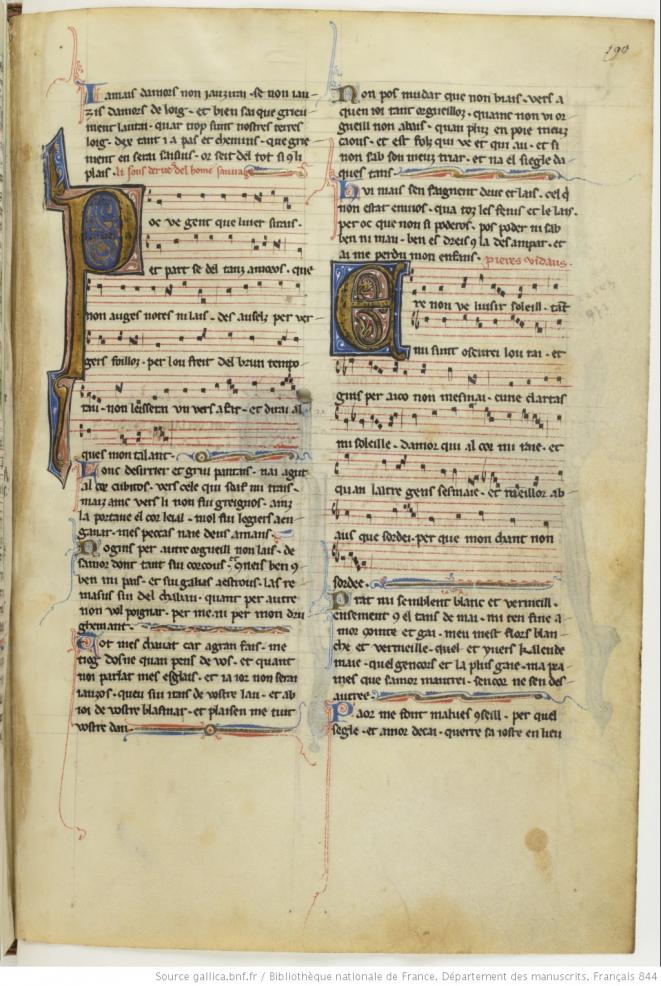 190
Iamais damors non iauzirai · se non iau
zis damors de loig · et bien sai que grieu
ment lautai · quar trop sunt nostres terres
loig · dex tant i a pas et chemins · que grie
ment en serai saisius · or seit del tot si 9 li
plais · li sons derves del home sauvage
oc ve gent que liuer sirais ·
et part se del tanz amoros · que
non auges notes ni lais · des ausels per ver
gers foilloz · per lou freit del brun tempo
rau · non leisserai un vers a far · et dirai al
ques mon talant ·
Lonc desirrier et griu pantais · nai agut
al cor cubitos · vers cele qui
maiz anc vers li non fui greignos · anz
la portaue el cor leial · mol fui legiers a en
ganar · mes peccas naie deus
Nogins per autre orgueill non lais · de
samor dont tant fui
ben mi pais · et fui galias
masius fui del · quant per autre
non vol poignar · per me ni per mon dru
ghemant ·
Tot mes car agran fais · me
tieg dosne quan pens de vos · et quant
non parlat mes esglais · et ia ior non serai
iauzos · queu fui de vostre lau · et ab
ioi de vostre blasmar · et plaisen me tuit
vostre dan ·
Non pos mudar que non biais · vers a
quen ioi tant orgueilloz · quanc non vi or
gueill non abais · quan plus en poie meuz
caous · et est folz qui ve et qui au · et si
non sab son meuz triar · et na el siegle da
ques tans ·
Hui mais sen feignent deus et lais · cel q
non estat enuios · qua toz les fenis et le lais ·
per oc que non si poderos · pos poder ni sab
ben ni mau · ben es dreis 9 la desampar · et
ai me perdu mon enfans · pieres vidaus ·
re non ve luisir soleill · tant
mi sunt oscurei lou rai · et
gins per aico non mesmai · cune clartas
mi soleille · damor qui al cor mi raie · et
quan laltre gens sesmaie · et meillor ab
aus que sordei · per que mon chant non
sordee ·
Prat mi semblent blanc et vermeill ·
ensement 9 el tans de mai · mi ten fine a
mor cointe et gai · meu mest flors blan
che et vermeille · quel et yuers kalende
maie · quel gencors et la plus gaie · ma pra
mes que samor mautrei · sencor ne sen des
autree ·
Paor me font malues 9seill · per quel
segle · et amor decai · querre sa ioste en lieu
Source gallica.bnf.fr / Bibliothèque nationale de France. Département des manuscrits. Français 844